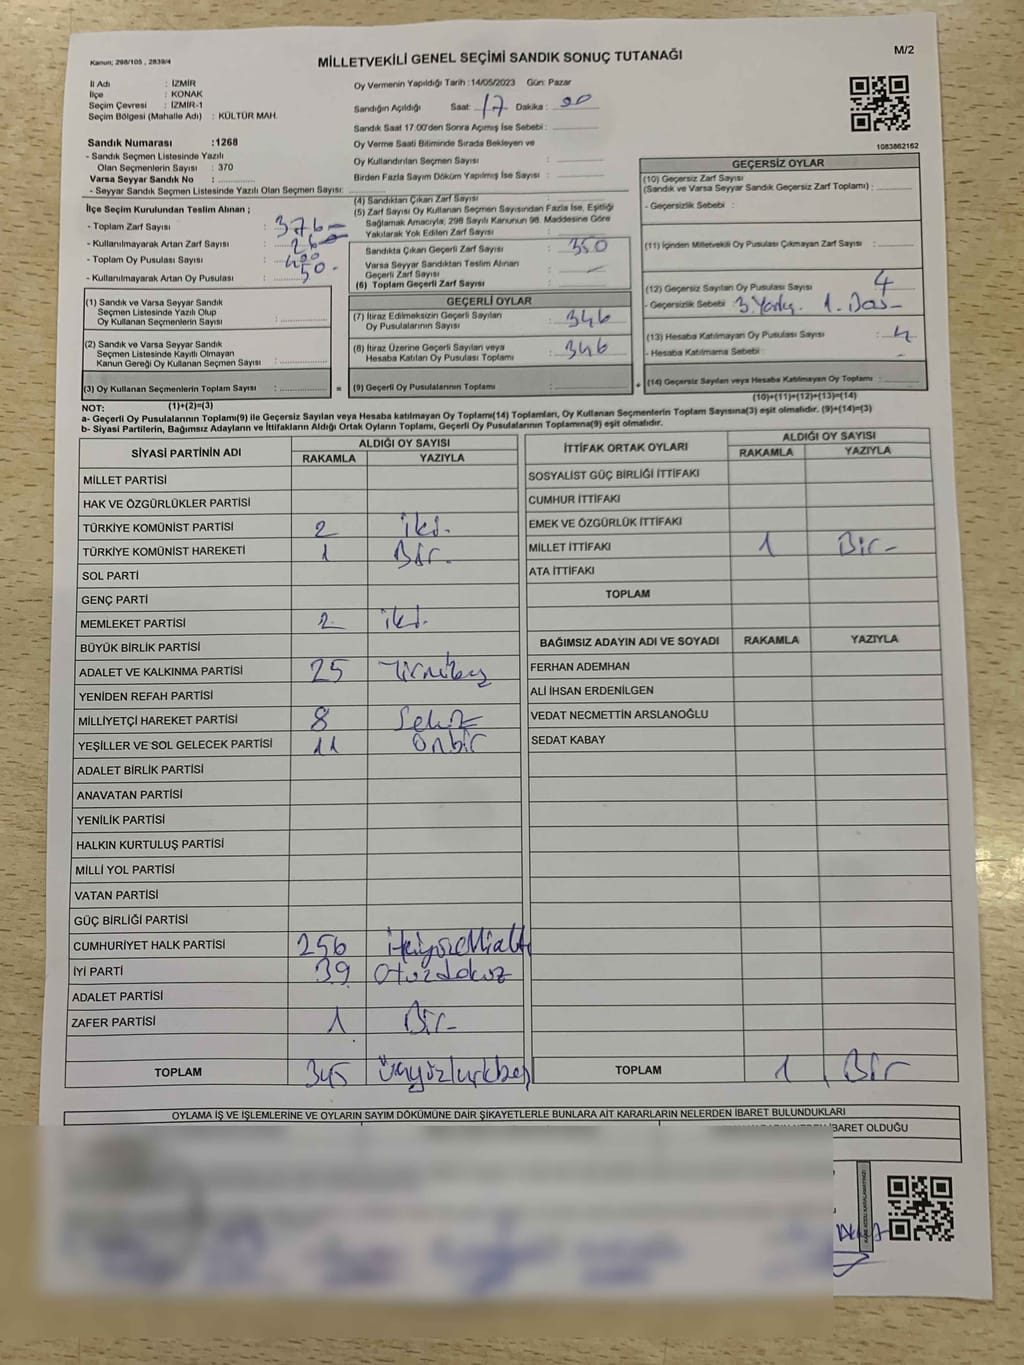 Kanun; 298/105 , 2839/4
MİLLETVEKİLİ GENEL SEÇİMİ SANDIK SONUÇ TUTANAĞI
M/2
İl Adı : İZMİR
İlçe : KONAK
Seçim Çevresi : İZMİR-1
Seçim Bölgesi (Mahalle Adı) : KÜLTÜR MAH.
Sandık Numarası :1268
- Sandık Seçmen Listesinde Yazılı
Olan Seçmenlerin Sayısı : 370
Varsa Seyyar Sandık No :
- Seyyar Sandık Seçmen Listesinde Yazılı Olan Seçmen Sayısı:
Oy Vermenin Yapıldığı Tarih :14/05/2023 Gün: Pazar
Sandığın Açıldığı Saat: 17 Dakika : 00
Sandık Saat 17:00'den Sonra Açımış İse Sebebi :
Oy Verme Saati Bitiminde Sırada Bekleyen ve
Oy Kullandırılan Seçmen Sayısı :
Birden Fazla Sayım Döküm Yapılmış İse Sayısı :
1083862162
İlçe Seçim Kurulundan Teslim Alınan ;
- Toplam Zarf Sayısı : 376
- Kullanılmayarak Artan Zarf Sayısı : 26
- Toplam Oy Pusulası Sayısı : 400
- Kullanılmayarak Artan Oy Pusulası : 50-
(1) Sandık ve Varsa Seyyar Sandık
Seçmen Listesinde Yazılı Olup
Oy Kullanan Seçmenlerin Sayısı :
(2) Sandık ve Varsa Seyyar Sandık
Seçmen Listesinde Kayıtlı Olmayan
Kanun Gereği Oy Kullanan Seçmen Sayısı :
(3) Oy Kullanan Seçmenlerin Toplam Sayısı : =
(4) Sandıktan Çıkan Zarf Sayısı :
(5) Zarf Sayısı Oy Kullanan Seçmen Sayısından Fazla İse, Eşitliği
Sağlamak Amacıyla; 298 Sayılı Kanunun 98. Maddesine Göre
Yakılarak Yok Edilen Zarf Sayısı :
Sandıkta Çıkan Geçerli Zarf Sayısı : 350
Varsa Seyyar Sandıktan Teslim Alınan
Geçerli Zarf Sayısı : -
(6) Toplam Geçerli Zarf Sayısı :
GEÇERLİ OYLAR
(7) İtiraz Edilmeksizin Geçerli Sayılan
Oy Pusulalarının Sayısı : 346
(8) İtiraz Üzerine Geçerli Sayılan ve
Hesaba Katılan Oy Pusulası Toplamı : 346
(9) Geçerli Oy Pusulalarının Toplamı : +
GEÇERSİZ OYLAR
(10) Geçersiz Zarf Sayısı
(Sandık ve Varsa Seyyar Sandık Geçersiz Zarf Toplamı) :
- Geçersizlik Sebebi :
(11) İçinden Milletvekili Oy Pusulası Çıkmayan Zarf Sayısı :
(12) Geçersiz Sayılan Oy Pusulası Sayısı : 4
- Geçersizlik Sebebi
(13) Hesaba Katılmayan Oy Pusulası Sayısı :
- Hesaba Katılmama Sebebi : -
(14) Geçersiz Sayılan veya Hesaba Katılmayan Oy Toplamı :
NOT: (1)+(2)=(3)
(10)+(11)+(12)+(13)=(14)
a- Geçerli Oy Pusulalarının Toplamı(9) ile Geçersiz Sayılan veya Hesaba katılmayan Oy Toplamı(14) Toplamları, Oy Kullanan Seçmenlerin Toplam Sayısına(3) eşit olmalıdır. (9)+(14)=(3)
b- Siyasi Partilerin, Bağımsız Adayların ve İttifakların Aldığı Ortak Oyların Toplamı, Geçerli Oy Pusulalarının Toplamına(9) eşit olmalıdır.
SİYASİ PARTİNİN ADI ALDIĞI OY SAYISI
RAKAMLA YAZIYLA
MİLLET PARTİSİ
HAK VE ÖZGÜRLÜKLER PARTİSİ
TÜRKİYE KOMÜNİST PARTİSİ 2 iki.
TÜRKİYE KOMÜNİST HAREKETİ 1 Bir.
SOL PARTİ
GENÇ PARTİ
MEMLEKET PARTİSİ 2 iki.
BÜYÜK BİRLİK PARTİSİ
ADALET VE KALKINMA PARTİSİ 25 Yirmibeş
YENİDEN REFAH PARTİSİ
MİLLİYETÇİ HAREKET PARTİSİ 8 Sekiz
YEŞİLLER VE SOL GELECEK PARTİSİ 11 Onbir
ADALET BİRLİK PARTİSİ
ANAVATAN PARTİSİ
YENİLİK PARTİSİ
HALKIN KURTULUŞ PARTİSİ
MİLLİ YOL PARTİSİ
VATAN PARTİSİ
GÜÇ BİRLİĞİ PARTİSİ
CUMHURİYET HALK PARTİSİ 256 ikiyüzellialtı
İYİ PARTİ 39 Otuzdokuz
ADALET PARTİSİ
ZAFER PARTİSİ 1 Bir-
TOPLAM 345 Üçyüzkırkbeş
İTTİFAK ORTAK OYLARI ALDIĞI OY SAYISI
RAKAMLA YAZIYLA
SOSYALİST GÜÇ BİRLİĞİ İTTİFAKI
CUMHUR İTTİFAKI
EMEK VE ÖZGÜRLÜK İTTİFAKI
MİLLET İTTİFAKI 1 Bir-
ATA İTTİFAKI
TOPLAM
BAĞIMSIZ ADAYIN ADI VE SOYADI RAKAMLA YAZIYLA
FERHAN ADEMHAN
ALİ İHSAN ERDENİLGEN
VEDAT NECMETTİN ARSLANOĞLU
SEDAT KABAY
TOPLAM 1 Bir
OYLAMA İŞ VE İŞLEMLERİNE VE OYLARIN SAYIM DÖKÜMÜNE DAİR ŞİKAYETLERLE BUNLARA AİT KARARLARIN NELERDEN İBARET BULUNDUKLARI
BARET OLDUĞU